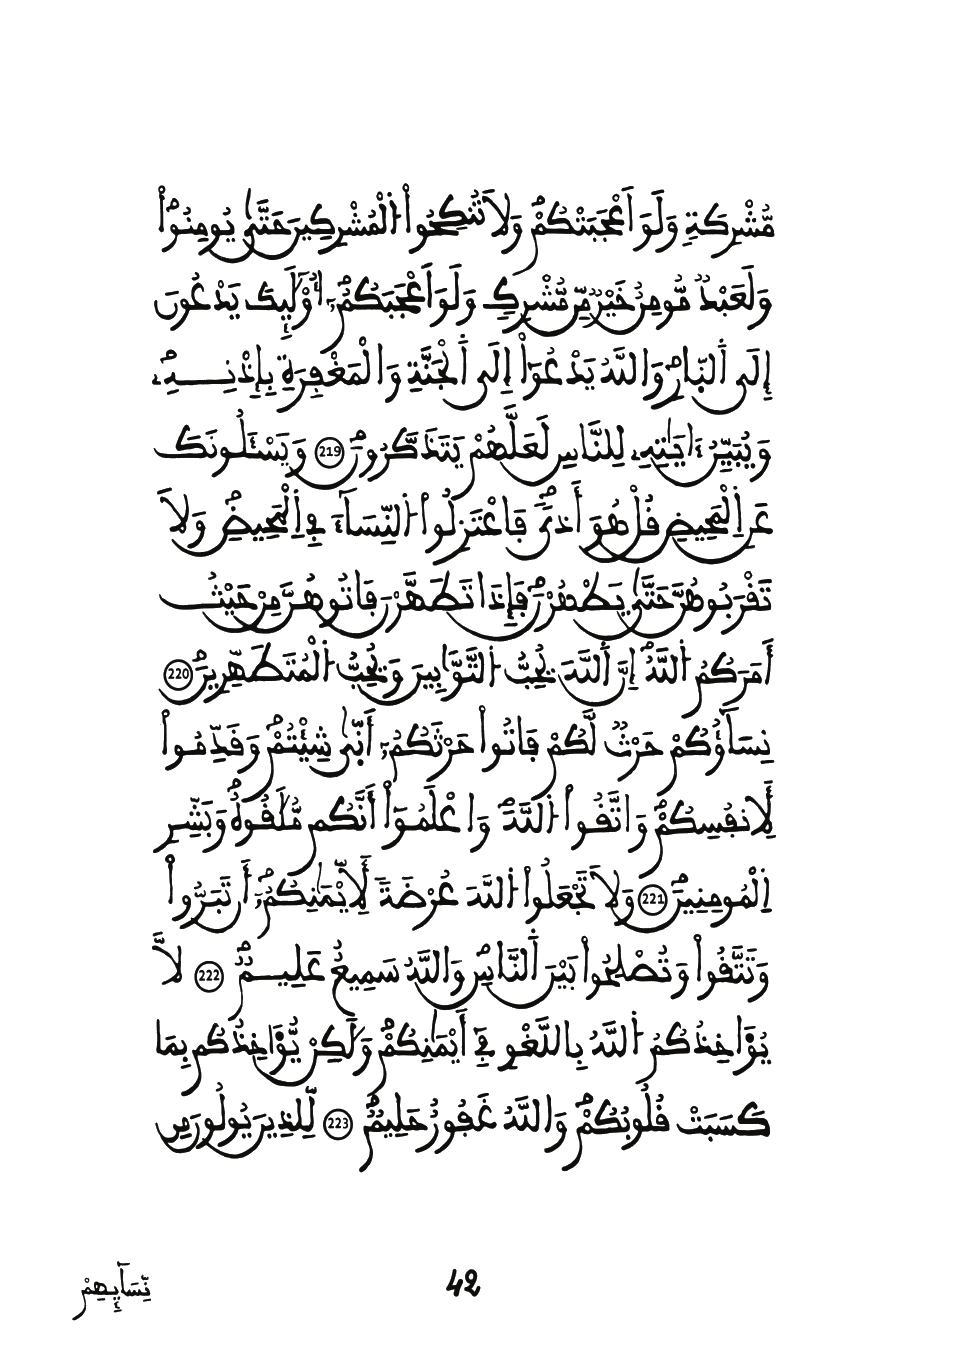 مُّشْرِكَةٖ وَلَوَ اَعْجَبَتْكُمْۖ وَلَا تُنكِحُواْ اُ۬لْمُشْرِكِينَ حَتَّىٰ يُومِنُواْۖ
وَلَعَبْدٞ مُّومِنٌ خَيْرٞ مِّن مُّشْرِكٖ وَلَوَ اَعْجَبَكُمُۥٓۖ أُوْلَٰٓئِكَ يَدْعُونَ
إِلَى اَ۬لنّ۪ارِۖ وَاللَّهُ يَدْعُوٓاْ إِلَى اَ۬لْجَنَّةِ وَالْمَغْفِرَةِ بِإِذْنِهِۦۖ
وَيُبَيِّنُ ءَايَٰتِهِۦ لِلنَّاسِ لَعَلَّهُمْ يَتَذَكَّرُونَۖ 219 وَيَسْـَٔلُونَكَ
عَنِ اِ۬لْمَحِيضِ قُلْ هُوَ أَذىٗ فَاعْتَزِلُواْ اُ۬لنِّسَآءَ فِے اِ۬لْمَحِيضِۖ وَلَا
تَقْرَبُوهُنَّ حَتَّىٰ يَطْهُرْنَۖ فَإِذَا تَطَهَّرْنَ فَاتُوهُنَّ مِنْ حَيْثُ
أَمَرَكُمُ اُ۬للَّهُۖ إِنَّ اَ۬للَّهَ يُحِبُّ اُ۬لتَّوَّٰبِينَ وَيُحِبُّ اُ۬لْمُتَطَهِّرِينَۖ 220
نِسَآؤُكُمْ حَرْثٞ لَّكُمْ فَاتُواْ حَرْثَكُمُۥٓ أَنّ۪ىٰ شِئْتُمْۖ وَقَدِّمُواْ
لِأَنفُسِكُمْۖ وَاتَّقُواْ اُ۬للَّهَۖ وَاعْلَمُوٓاْ أَنَّكُم مُّلَٰقُوهُۖ وَبَشِّرِ
اِ۬لْمُومِنِينَۖ 221 وَلَا تَجْعَلُواْ اُ۬للَّهَ عُرْضَةٗ لِّأَيْمَٰنِكُمُۥٓ أَن تَبَرُّواْ
وَتَتَّقُواْ وَتُصْلِحُواْ بَيْنَ اَ۬لنَّاسِۖ وَاللَّهُ سَمِيعٌ عَلِيمٞۖ 222 لَّا
يُؤَاخِذُكُمُ اُ۬للَّهُ بِاللَّغْوِ فِےٓ أَيْمَٰنِكُمْۖ وَلَٰكِنْ يُّؤَاخِذُكُم بِمَا
كَسَبَتْ قُلُوبُكُمْۖ وَاللَّهُ غَفُورٌ حَلِيمٞۖ 223 لِّلذِينَ يُولُونَ مِن
نِّسَآئِهِمْ
42